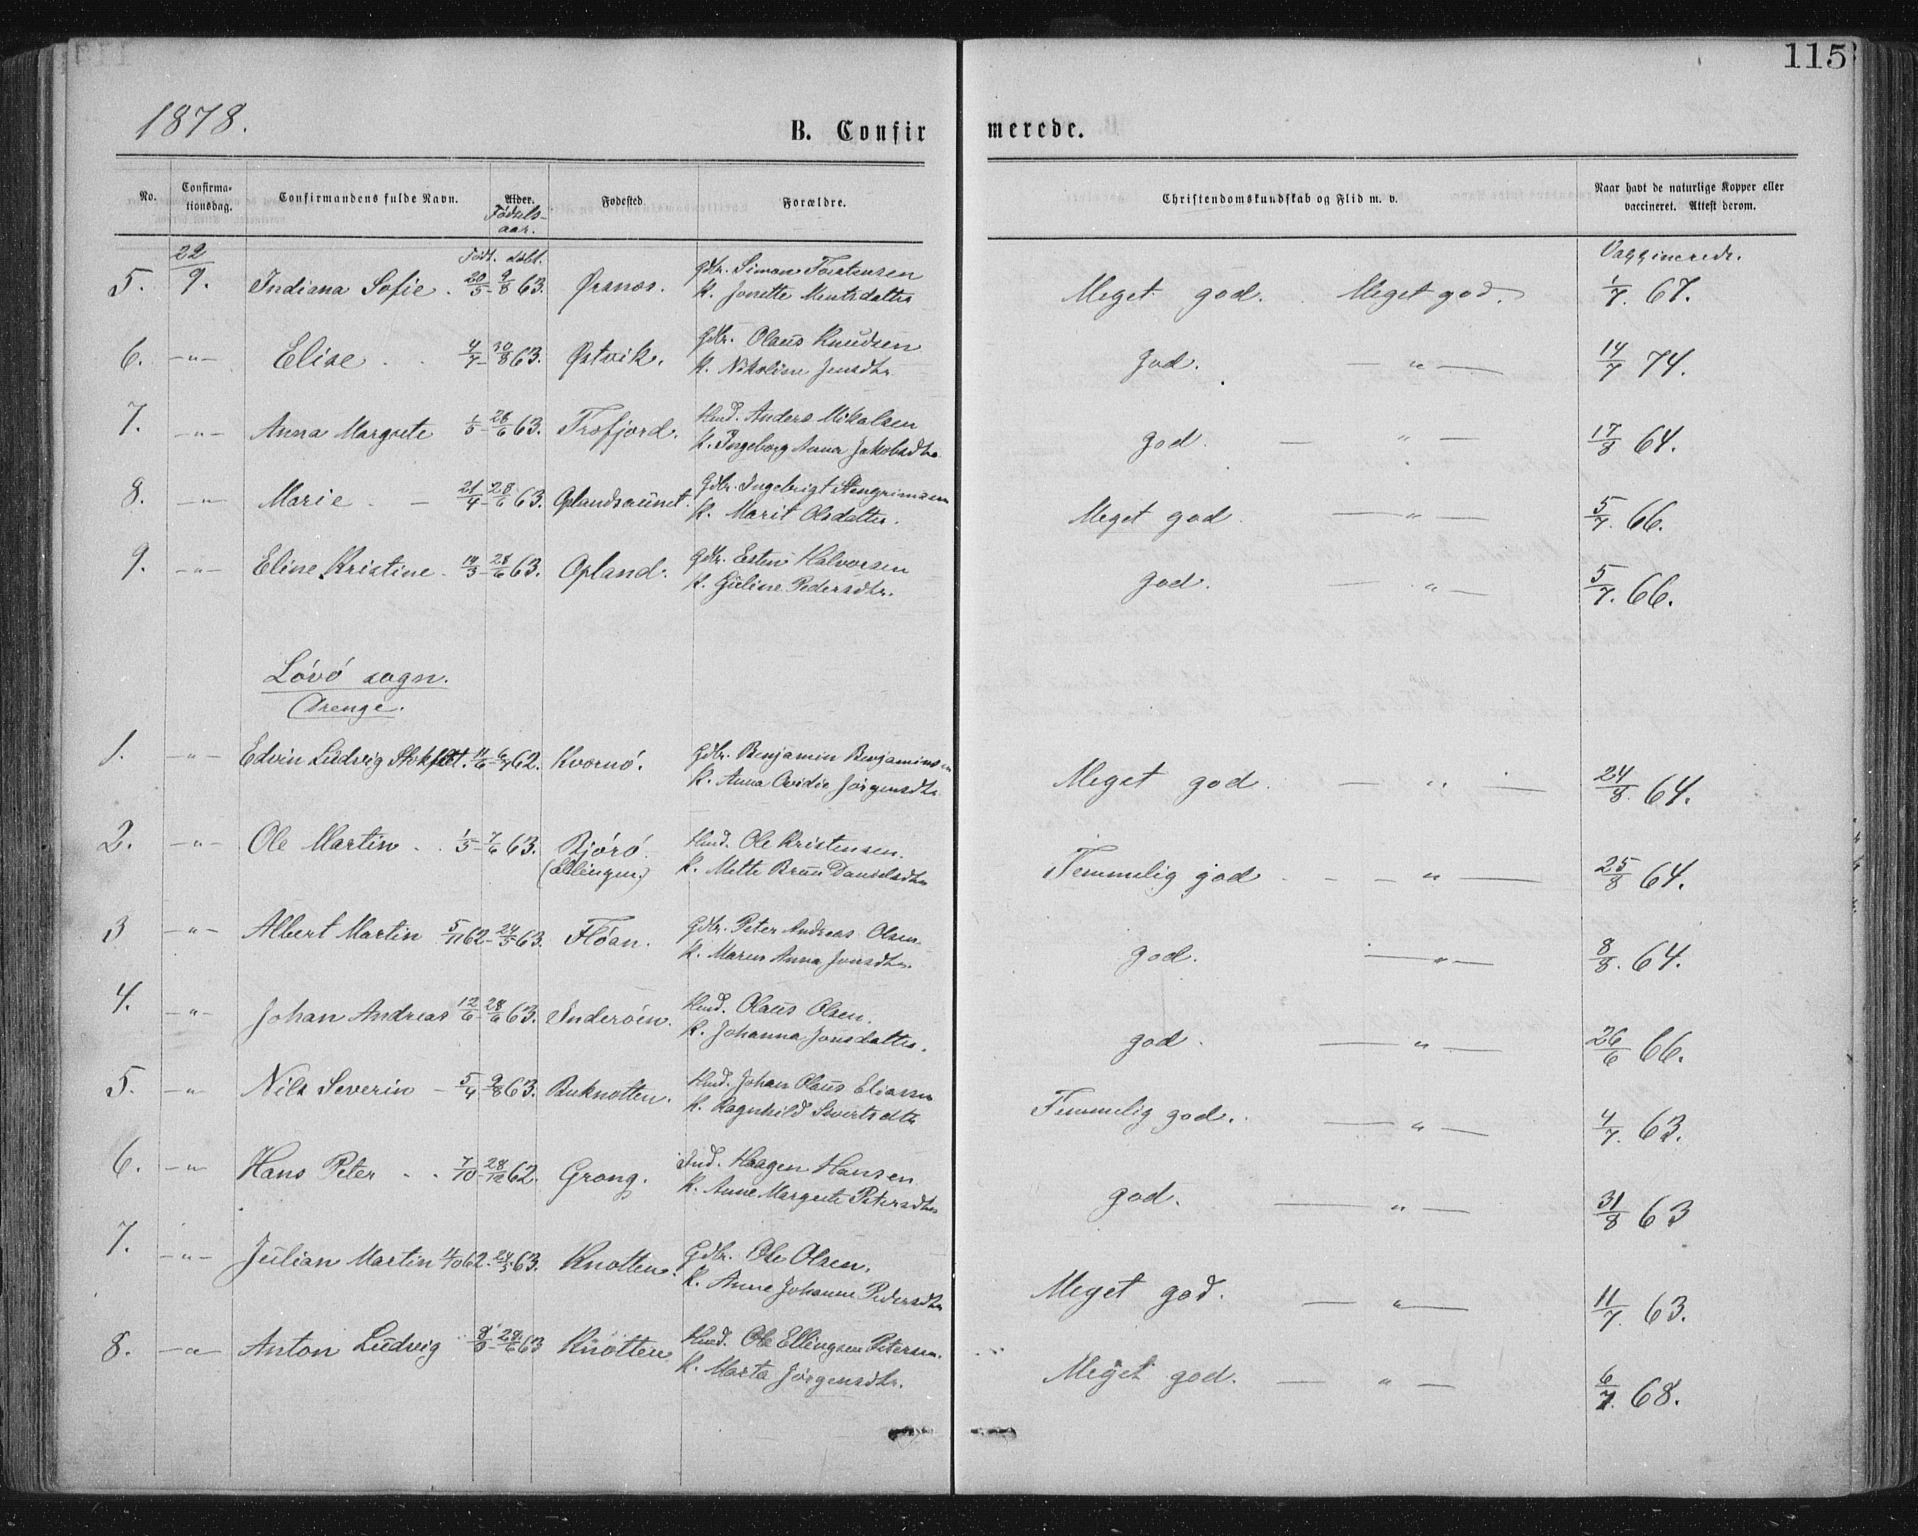 115
1878.
B. Confirmerede.
No. Confirma-tionsdag. Confirmandens fulde Navn. Alder. Fødels-aar. Fødested Forældre. Christendomskundskab og Flid m. v. Naar havt de naturlige Kopper eller vaccineret. Attest derom.
Født. døbt. Vaggineredr.
5. 22/9. Indiana Sofie. 20/5-9/8 63. Øranos. Gdbr. Simon Torstensen Meget god. Meget god. 1/7. 67.
K. Jonette Mentsdatter
6. -"- Elise 4/7-30/8 63. Østvik. Gdbr. Olaus Knudsen god. — " — 14/7 74.
K. Nikoline Jensdtr
7. -"- Anna Margrete 1/5-28/6 63. Trofjord. Hmd. Anders Mikalsen god. — " — 17/8 64.
K. Ingeborg Anna Jakobsdtr
8. -"- Marie — 21/4-28/6 63. Oplandsaunet. Gdbr. Ingebrigt Stengrimsen Meget god. — " — 5/7. 66.
K. Marit Olsdatter.
9. -"- Eline Kristine. 14/3-28/6 63. Opland. Gdbr. Esten Halvorsen god. — " — 5/7. 66.
K. Guline Pedersdtr.
Lövö sogn.
Drenge.
1. -"- Edvin Ludvig Stokflet. 11/6-6/7 62. Kvornö. Gdbr. Benjamin Benjaminsen Meget god. — " — 24/8. 64.
K. Anna Ovidie Jörgensdtr
2. -"- Ole Martin 1/5-7/6 63. Bjórö. Hmd. Ole Kristensen. Temmelig god — " — 25/8 64.
(Ellingen.) K. Mette Bruu Danielsdtr
3 -"- Albert Martin 5/11 62-24/5 63. Flöan. Gdbr. Peter Andreas Olsen god. — " — 8/8. 64.
K. Maren Anna Jonsdtr.
4. -"- Johan Andreas 12/6-28/6 63. Inderöen. Hmd. Olaus Olsen. god. — " — 26/6 66.
K. Johanna Jonsdatter.
5. -"- Nils Severin — 5/4-9/8 63. Buknotten. Hmd. Johan Olaus Eliassen Temmelig god. — " — 4/7. 63.
K. Ragnhild Sivertsdtr
6. -"- Hans Peter 7/10-28/12 62. Grong. Ind. Haagen Hansen god. — " — 31/8 63
K. Anne Margrete Petersdtr
7. -"- Julian Martin 4/10 62. 24/5 63. Knotten. Gdbr. Ole Olsen. Meget god. — " — 11/7. 63.
K. Anne Johanne Pedersdtr
8. -"- Anton Ludvig 8/3-28/6 63 Knotten Hmd. Ole Ellingsen Petersen. Meget god. — " — 6/7. 68.
K. Marta Jörgensdtr.